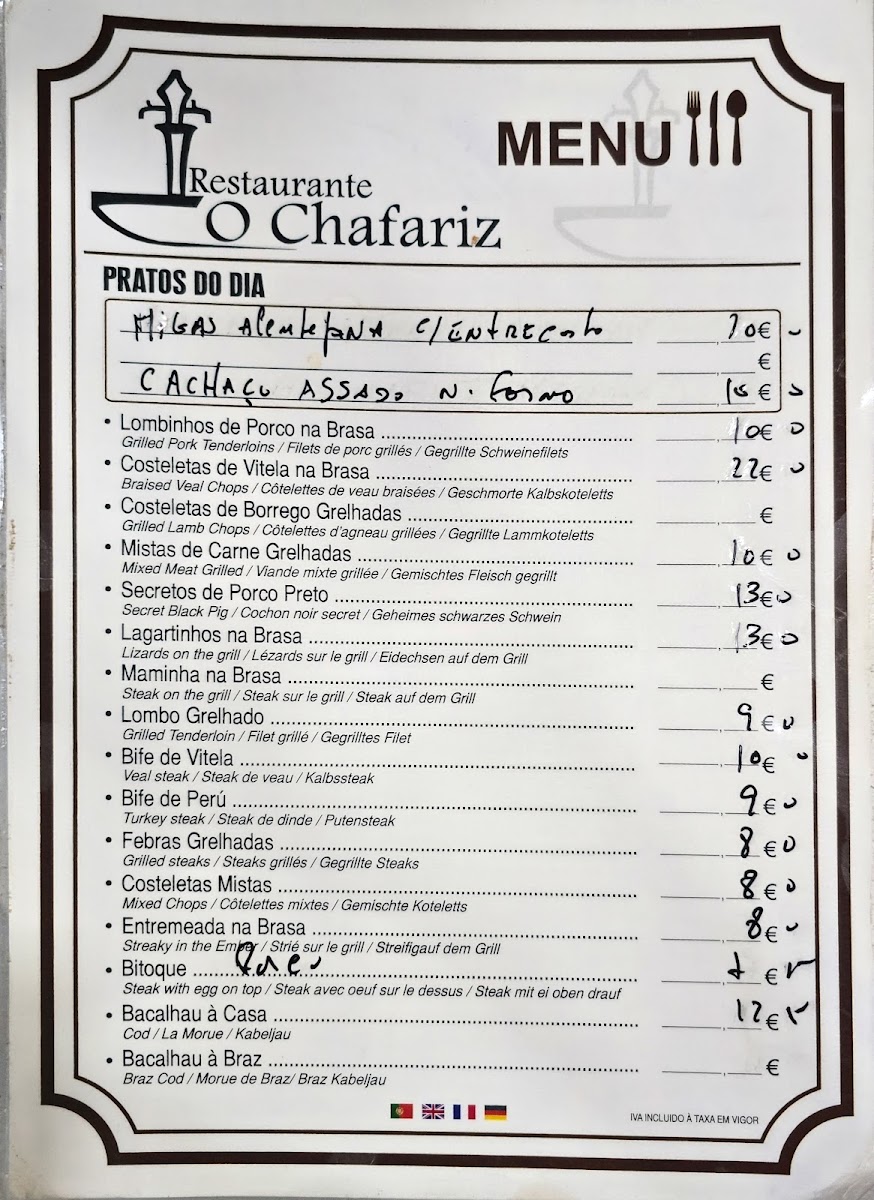 MENU
Restaurante
O Chafariz
PRATOS DO DIA
MiGAS AlenteJANA C/ENTRECosto 10€
€
CACHAÇO ASSADO N. FORNO 10€
• Lombinhos de Porco na Brasa 10€
Grilled Pork Tenderloins / Filets de porc grillés / Gegrillte Schweinefilets
• Costeletas de Vitela na Brasa 22€
Braised Veal Chops / Côtelettes de veau braisées / Geschmorte Kalbskoteletts
• Costeletas de Borrego Grelhadas €
Grilled Lamb Chops / Côtelettes d'agneau grillées / Gegrillte Lammkoteletts
• Mistas de Carne Grelhadas 10€
Mixed Meat Grilled / Viande mixte grillée / Gemischtes Fleisch gegrillt
• Secretos de Porco Preto 13€
Secret Black Pig / Cochon noir secret / Geheimes schwarzes Schwein
• Lagartinhos na Brasa 13€
Lizards on the grill / Lézards sur le grill / Eidechsen auf dem Grill
• Maminha na Brasa €
Steak on the grill / Steak sur le grill / Steak auf dem Grill
• Lombo Grelhado 9€
Grilled Tenderloin / Filet grillé / Gegrilltes Filet
• Bife de Vitela 10€
Veal steak / Steak de veau / Kalbssteak
• Bife de Perú 9€
Turkey steak / Steak de dinde / Putensteak
• Febras Grelhadas 8€
Grilled steaks / Steaks grillés / Gegrillte Steaks
• Costeletas Mistas 8€
Mixed Chops / Côtelettes mixtes / Gemischte Koteletts
• Entremeada na Brasa 8€
Streaky in the Ember / Strié sur le grill / Streifigauf dem Grill
• Bitoque €
Steak with egg on top / Steak avec oeuf sur le dessus / Steak mit ei oben drauf
• Bacalhau à Casa 12€
Cod / La Morue / Kabeljau
• Bacalhau à Braz €
Braz Cod / Morue de Braz/ Braz Kabeljau
IVA INCLUIDO À TAXA EM VIGOR